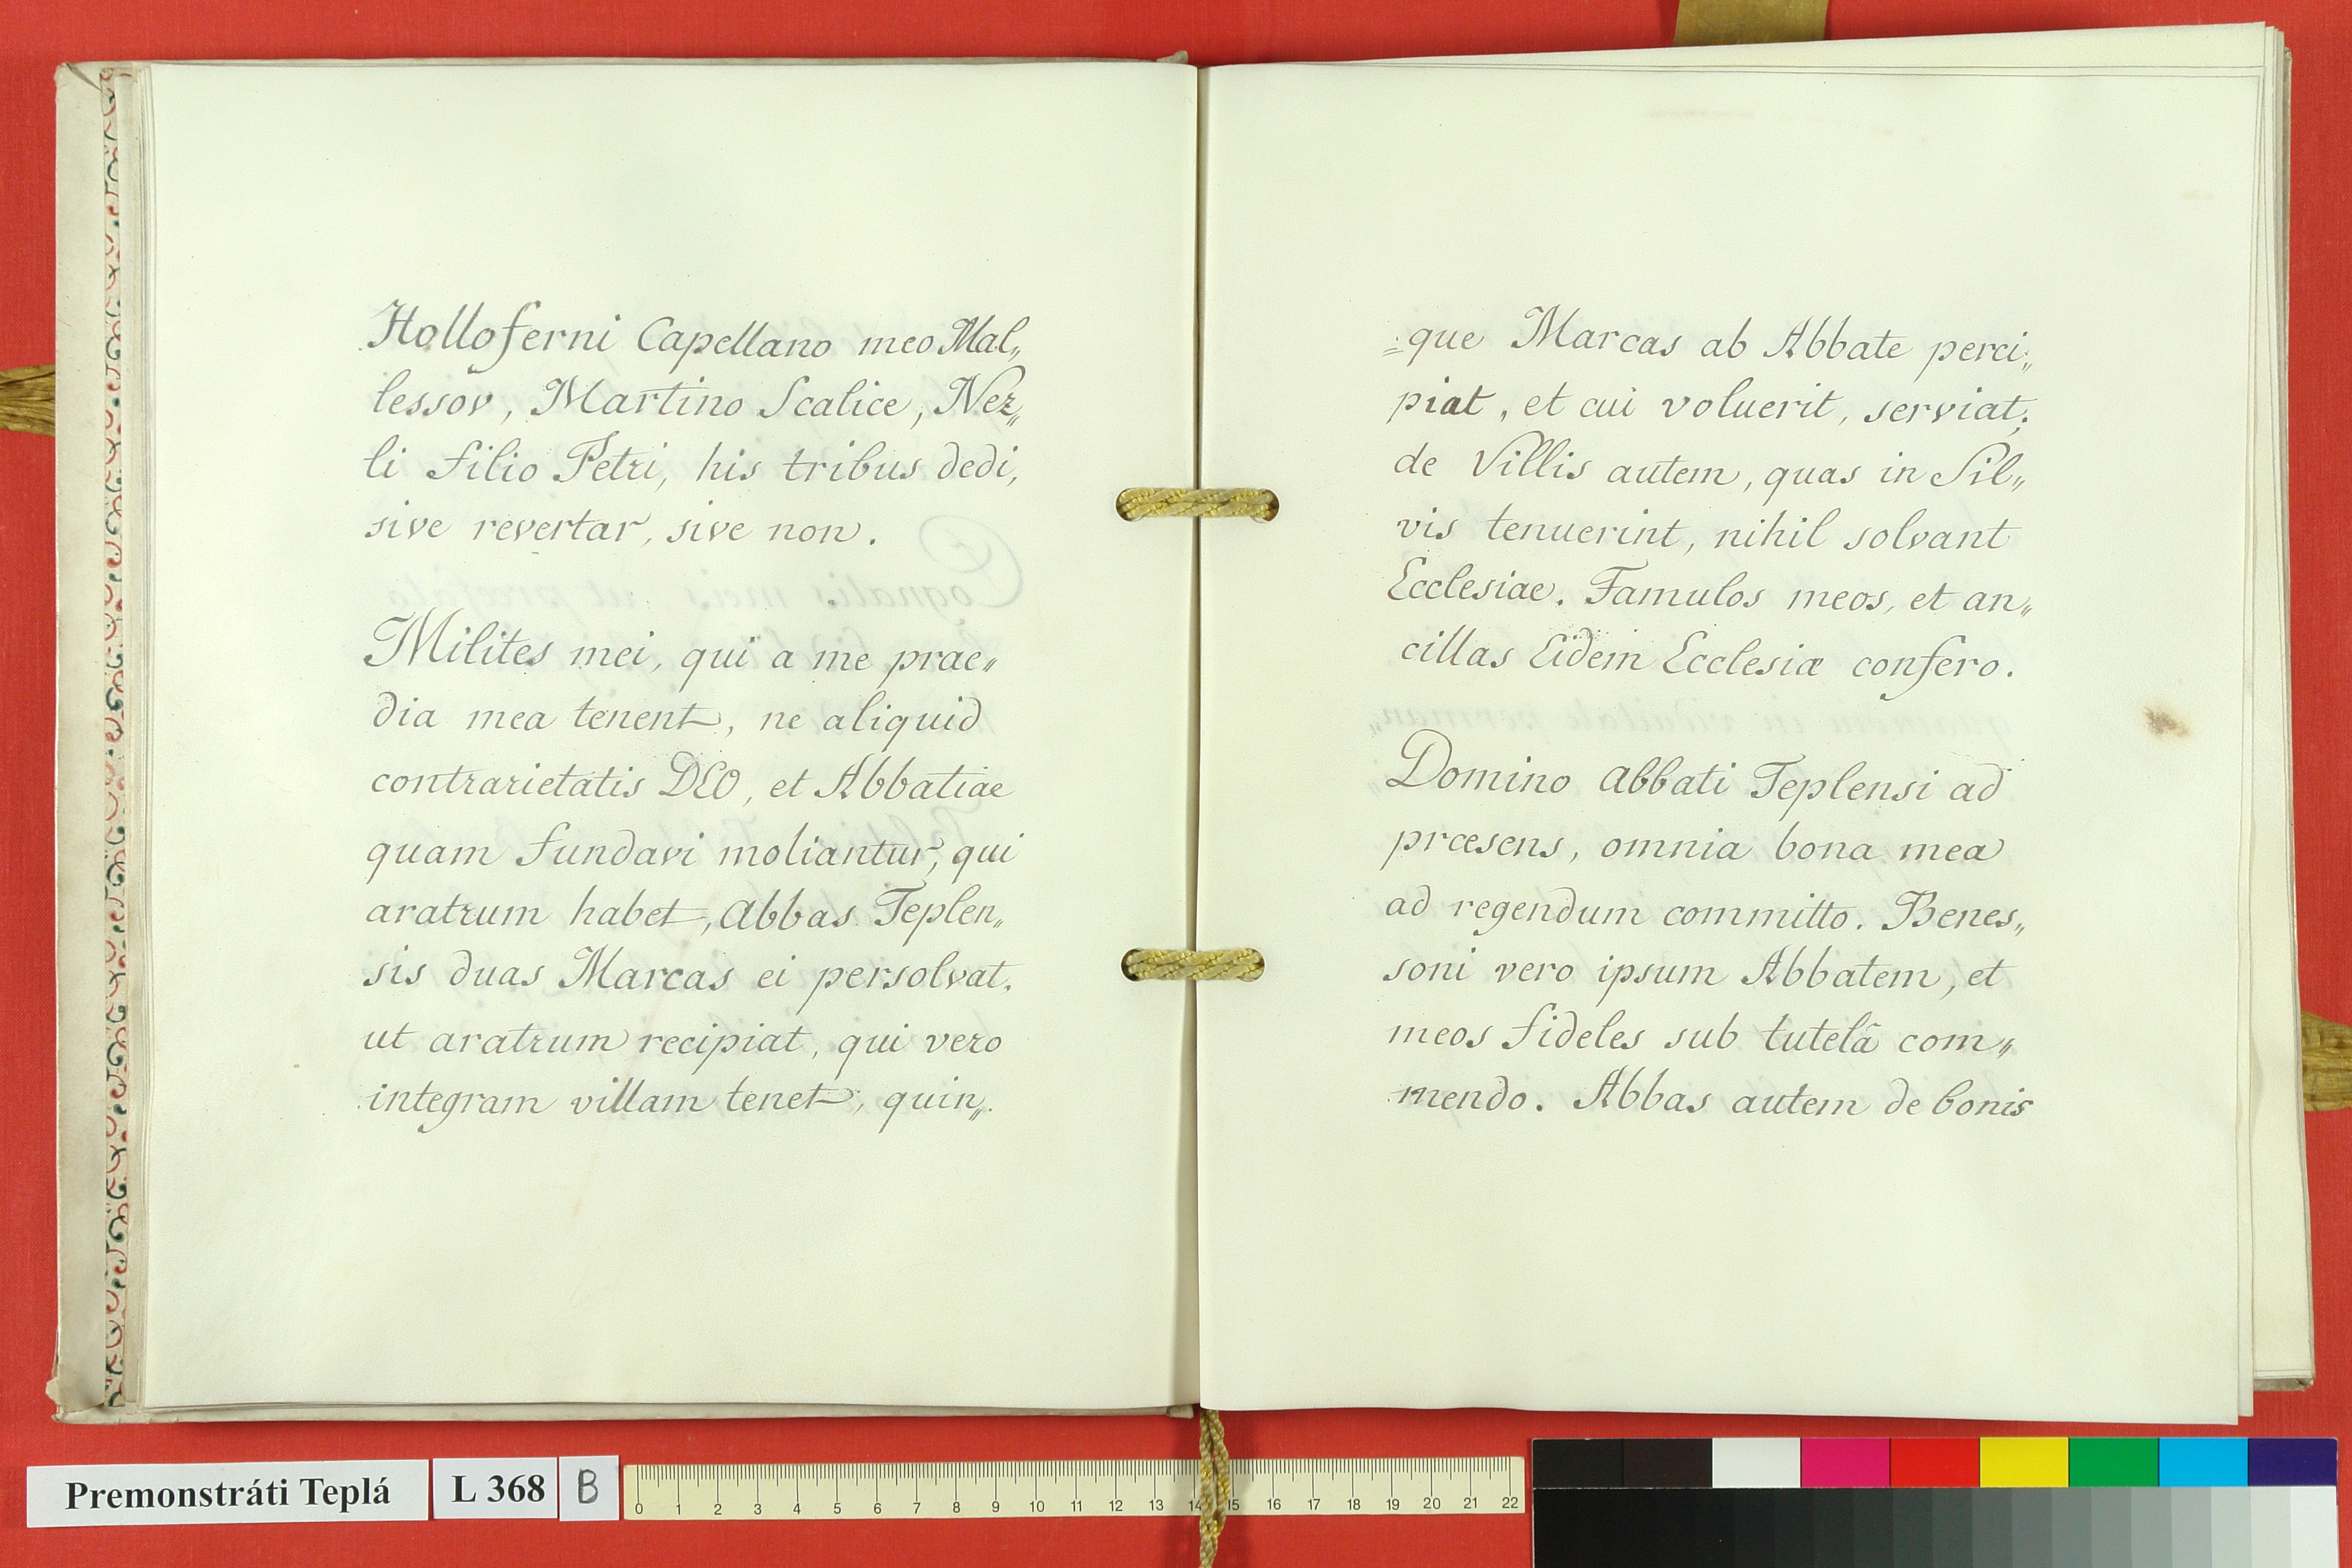 Holloferni Capellano meo Mal„
lessov, Martino Scalice, Nez„
li filio Petri, his tribus dedi,
sive revertar, sive non.
Milites mei, qui a me prae„
dia mea tenent, ne aliquid
contrarietatis DEO, et Abbatiae
quam fundavi moliantur, qui
aratrum habet, Abbas Teplen„
sis duas Marcas ei persolvat.
ut aratrum recipiat, qui vero
integram villam tenet, quin„
=que Marcas ab Abbate perci„
piat, et cui voluerit, serviat;
de Villis autem, quas in Sil„
vis tenuerint, nihil solvant
Ecclesiae. Famulos meos, et an„
cillas Eidem Ecclesiæ confero.
Domino Abbati Teplensi ad
præsens, omnia bona mea
ad regendum committo. Benes„
soni vero ipsum Abbatem, et
meos fideles sub tutelâ com„
mendo. Abbas autem de bonis
Premonstráti Teplá L 368 B
0 1 2 3 4 5 6 7 8 9 10 11 12 13 14 15 16 17 18 19 20 21 22